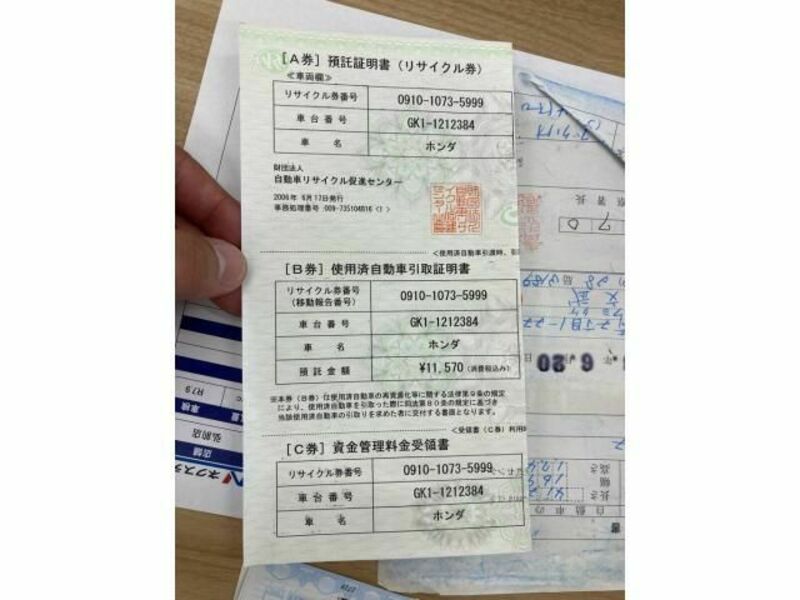 [A券] 預託証明書(リサイクル券)
≪車両欄≫
リサイクル券番号 0910-1073-5999
車台番号 GK1-1212384
車名 ホンダ
財団法人
自動車リサイクル促進センター
2006年 6月17日発行
事務処理番号 009-735104816〈1〉
<使用済自動車引渡時、
[B券] 使用済自動車引取証明書
リサイクル券番号 0910-1073-5999
(移動報告番号)
車台番号 GK1-1212384
車名 ホンダ
預託金額 ¥11,570(消費税込み)
※本券(B券)は使用済自動車の再資源化等に関する法律第9条の規定
により、使用済自動車を引取った際に同法第80条の規定に基づき
当該使用済自動車の引取りを求めた者に交付する書面となります。
<受領書(C券)利用時
[C券] 資金管理料金受領書
リサイクル券番号 0910-1073-5999
車台番号 GK1-1212384
車名 ホンダ
署長
70
6 20
高さ
幅
長さ
自動車の
書
車検 R7.5
店舗 弘前店
ネクス